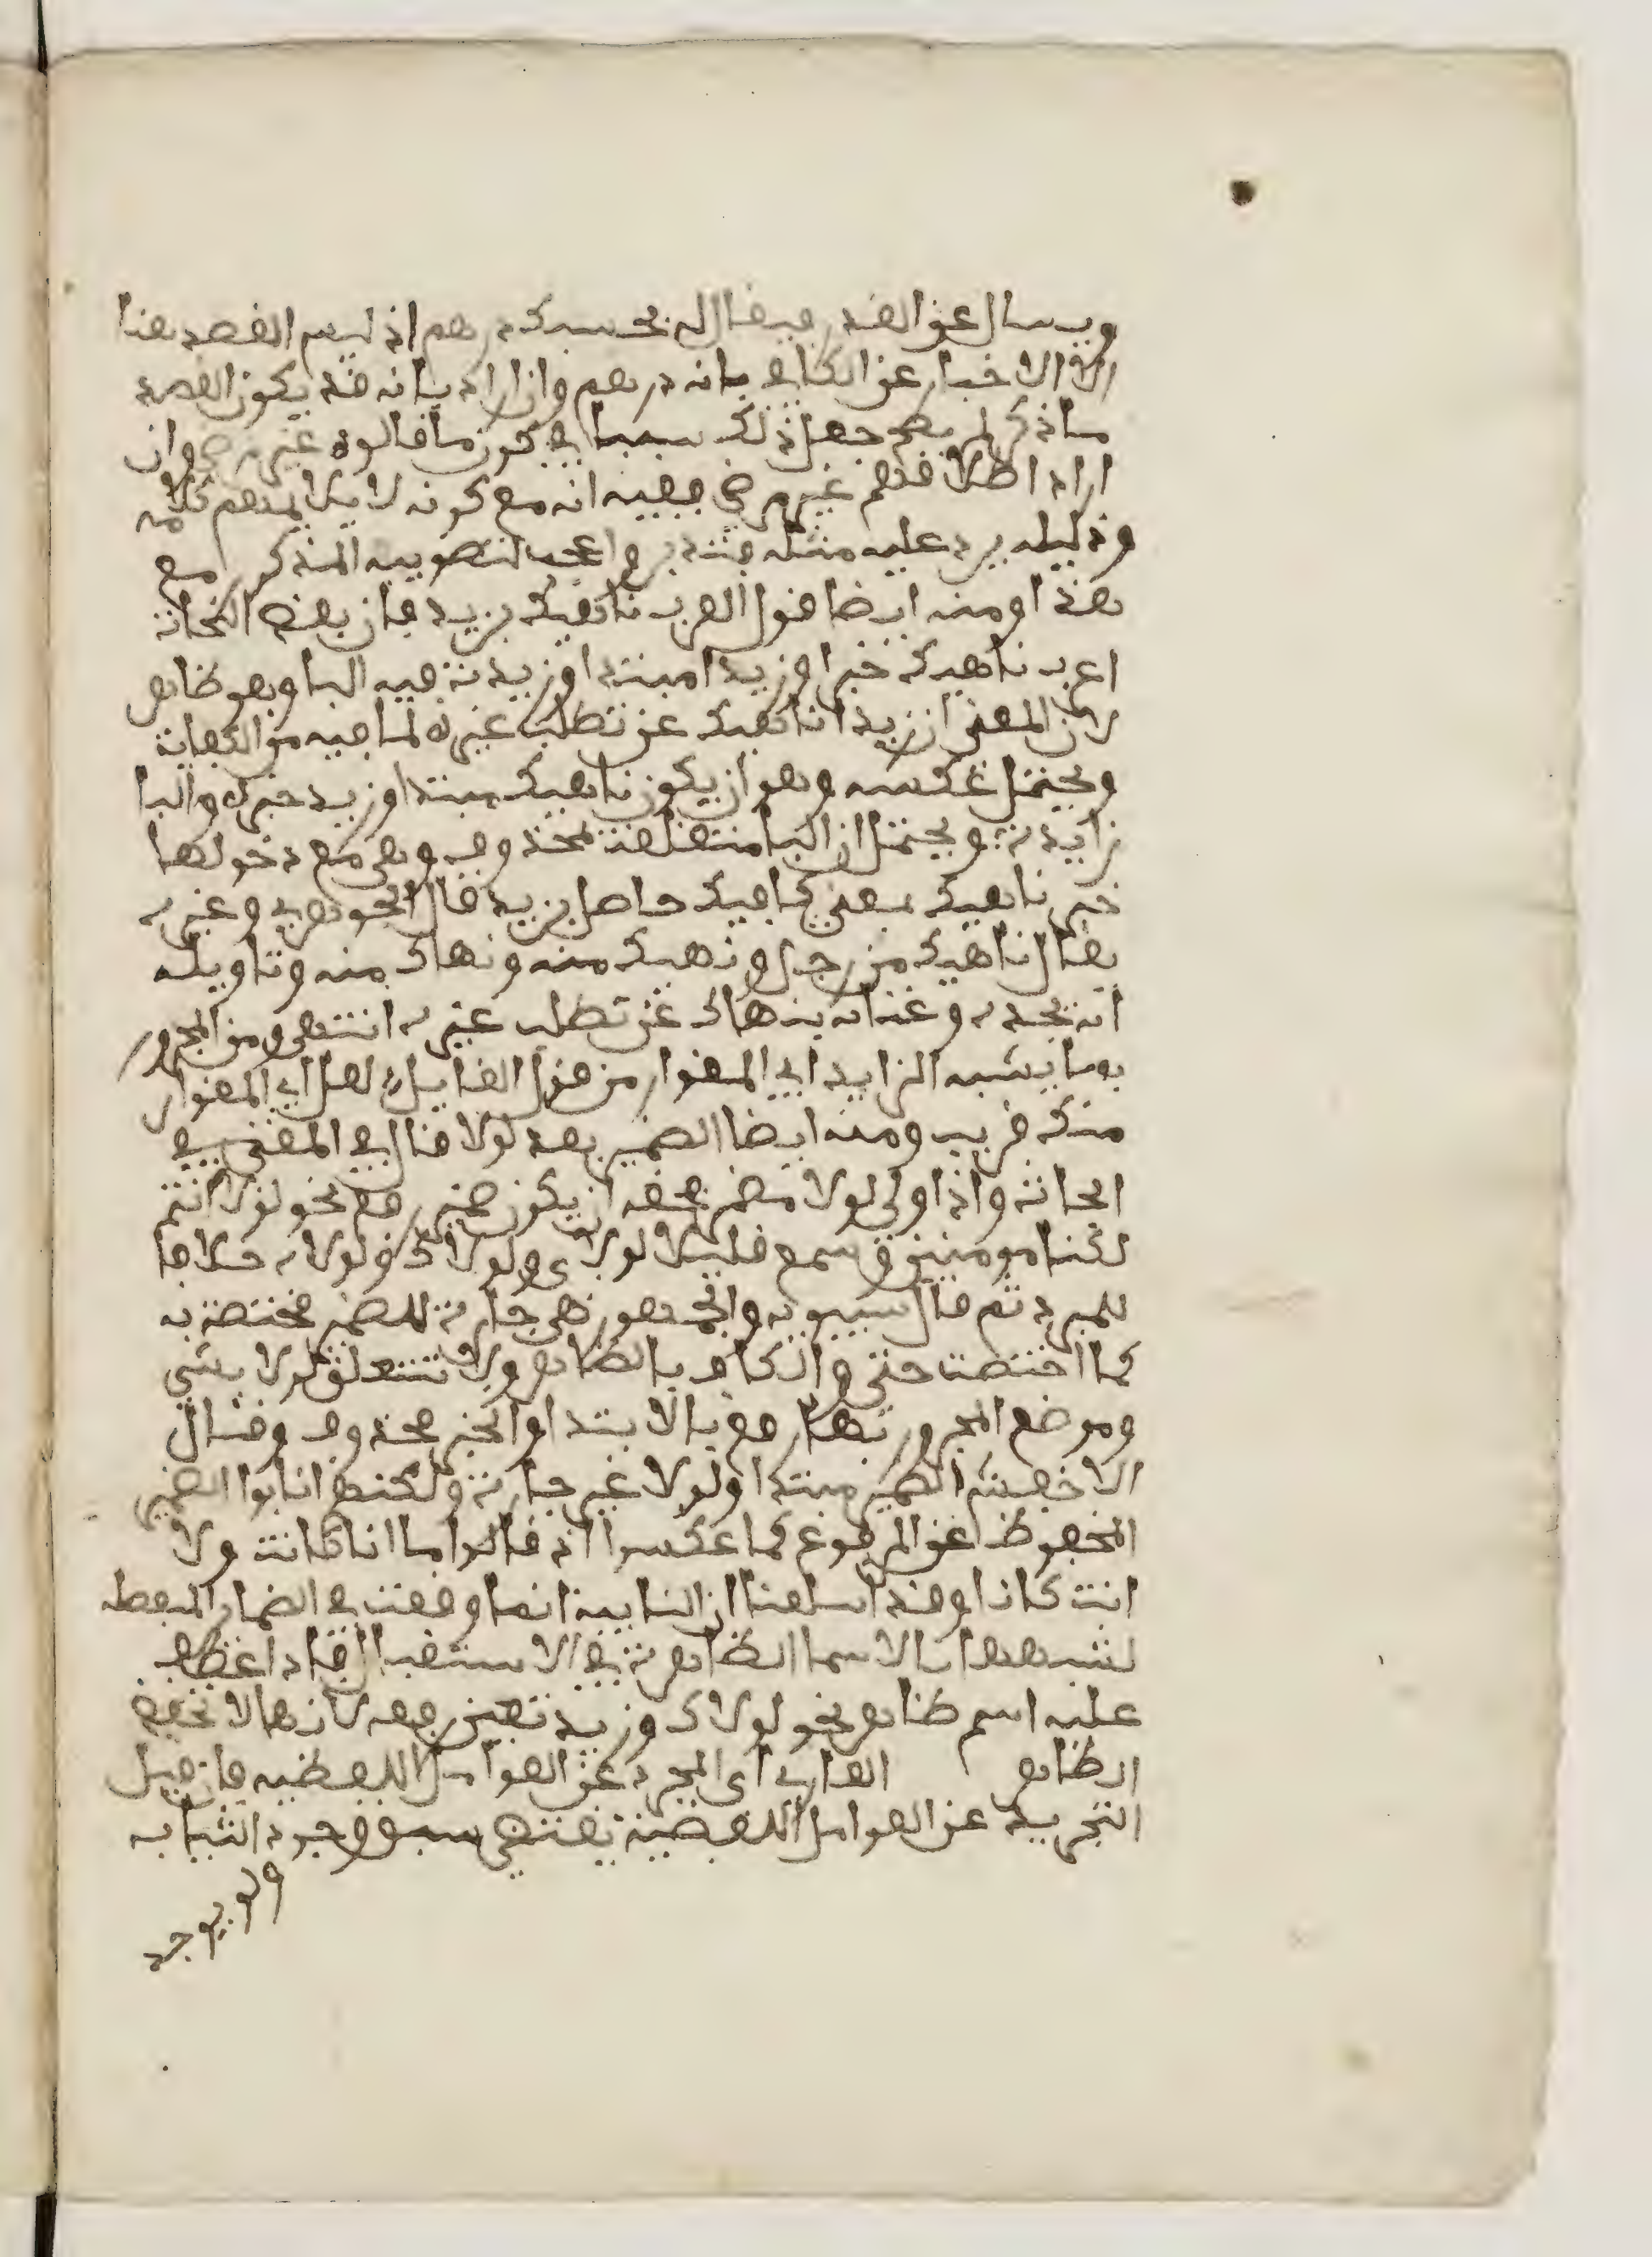 ويسال عن القدر فيقال له بحسبك درهم اذ ليس القصد هنا
الا الاخبار عن الكافي بانه درهم وان اراد بانه قد يكون القصد
ما ذكر لم يصح جعل ذلك سببا في كون ما قالوه غير مرضي وان
اراد اطلاقهم غير مرضي ففيه انه مع كونه لا يلايمهم كلامه
ودليله يرد عليه مثله فتدبر واعجب لتصويبه المذكور مع
هذا ومنه ايضا قول العرب ناهيك بزيد فان بعض النحاة
اعرب ناهيك خبرا وزيدا مبتدا وزيدت فيه البا وهو ظاهر
لان المعنى ان زيدا ناهيك عن تطلب غيره لما فيه من الكفاية
ويحتمل عكسه وهو ان يكون ناهيك مبتدا وزيد خبره والبا
زايدة ويحتمل ان البا متعلقة بمحذوف وهي مع مدخولها
خبر ناهيك بمعنى كافيك حاصل بزيد قال الجوهري وغيره
يقال ناهيك من رجل ونهيك منه ونهاك منه وتاويله
انه بجده وغنايه ينهاك عن تطلب غيره انتهى ومن المجرور
بما يشبه الزايد ابي المغوار من قول القايل لعل ابي المغوار
منك قريب ومنه ايضا الضمير بعد لولا قال في المغني في
الحانه واذا ولي لولا مضمر فحقه ان يكون ضمير رفع نحو لولا انتم
لكنا مومنين وسمع قليلا لولاي ولولاك ولولاه خلافا
للمبرد ثم قال سيبويه والجمهور هي جارة للضمير مختصة به
كما اختصت حتى والكاف بالظاهر ولا تتعلق لولا بشي
وموضع المجرور بها رفع بالابتدا والخبر محذوف وقال
الاخفش الضمير مبتدا ولولا غير جارة ولكنهم انابوا الضمير
المخفوض عن المرفوع كما عكسوا اذ قالوا ما انا كانت ولا
انت كانا وقد اسلفنا ان النيابة انما وقعت في الضماير المنفصلة
لشبهها بالاسما الظاهرة في الاستقلال فاذا عطف
عليه اسم ظاهر نحو لولاك وزيد تعين رفعه لانها لا تخفض
الظاهر العاري اي المجرد عن العوامل اللفظية فان قيل
التجريد عن العوامل اللفظية يقتضي سبق وجود الشيا به
ولم يوجد